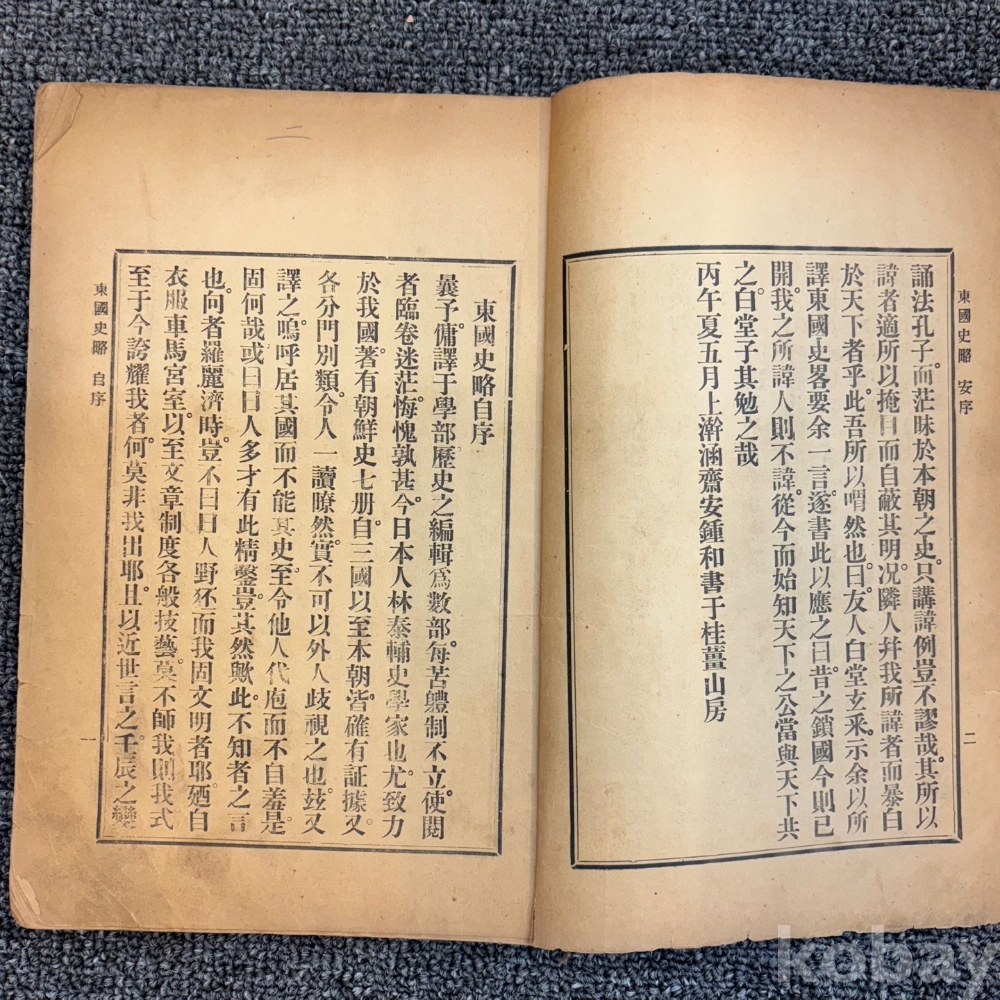 東國史略 安序
二
誦法孔子而茫昧於本朝之史。只講諱例豈不謬哉。其所以
諱者適所以掩目而自蔽其明。况隣人幷我所諱者而暴白
於天下者乎。此吾所以喟然也。日。友人白堂玄采。示余以所
譯東國史畧要余一言。遂書此以應之曰。昔之鎖國今則已
開。我之所諱人則不諱。從今而始知天下之公當與天下共
之。白堂子其勉之哉
丙午夏五月上澣涵齋安鍾和書于桂薑山房
二
東國史略自序
曩予。傭譯于學部。歷史之編輯爲數部。每苦軆制不立。使閱
者臨卷迷茫。悔愧孰甚。今日本人林泰輔史學家也。尤致力
於我國。著有朝鮮史七册。自三國以至本朝。皆確有証據。又
各分門別類。令人一讀瞭然。實不可以外人歧視之也。玆又
譯之。嗚呼。居其國而不能其史。至令他人代庖而不自羞。是
固何哉。或曰。日人多才有此精鑿。豈其然歟。此不知者之言
也。向者羅麗濟時。豈不曰日人野狉而我固文明者耶。廼自
衣服車馬宮室。以至文章制度各般技藝。莫不師我。則我式
至于今誇耀我者。何莫非我出耶。且以近世言之。壬辰之變
東國史略 自序
一
kobay